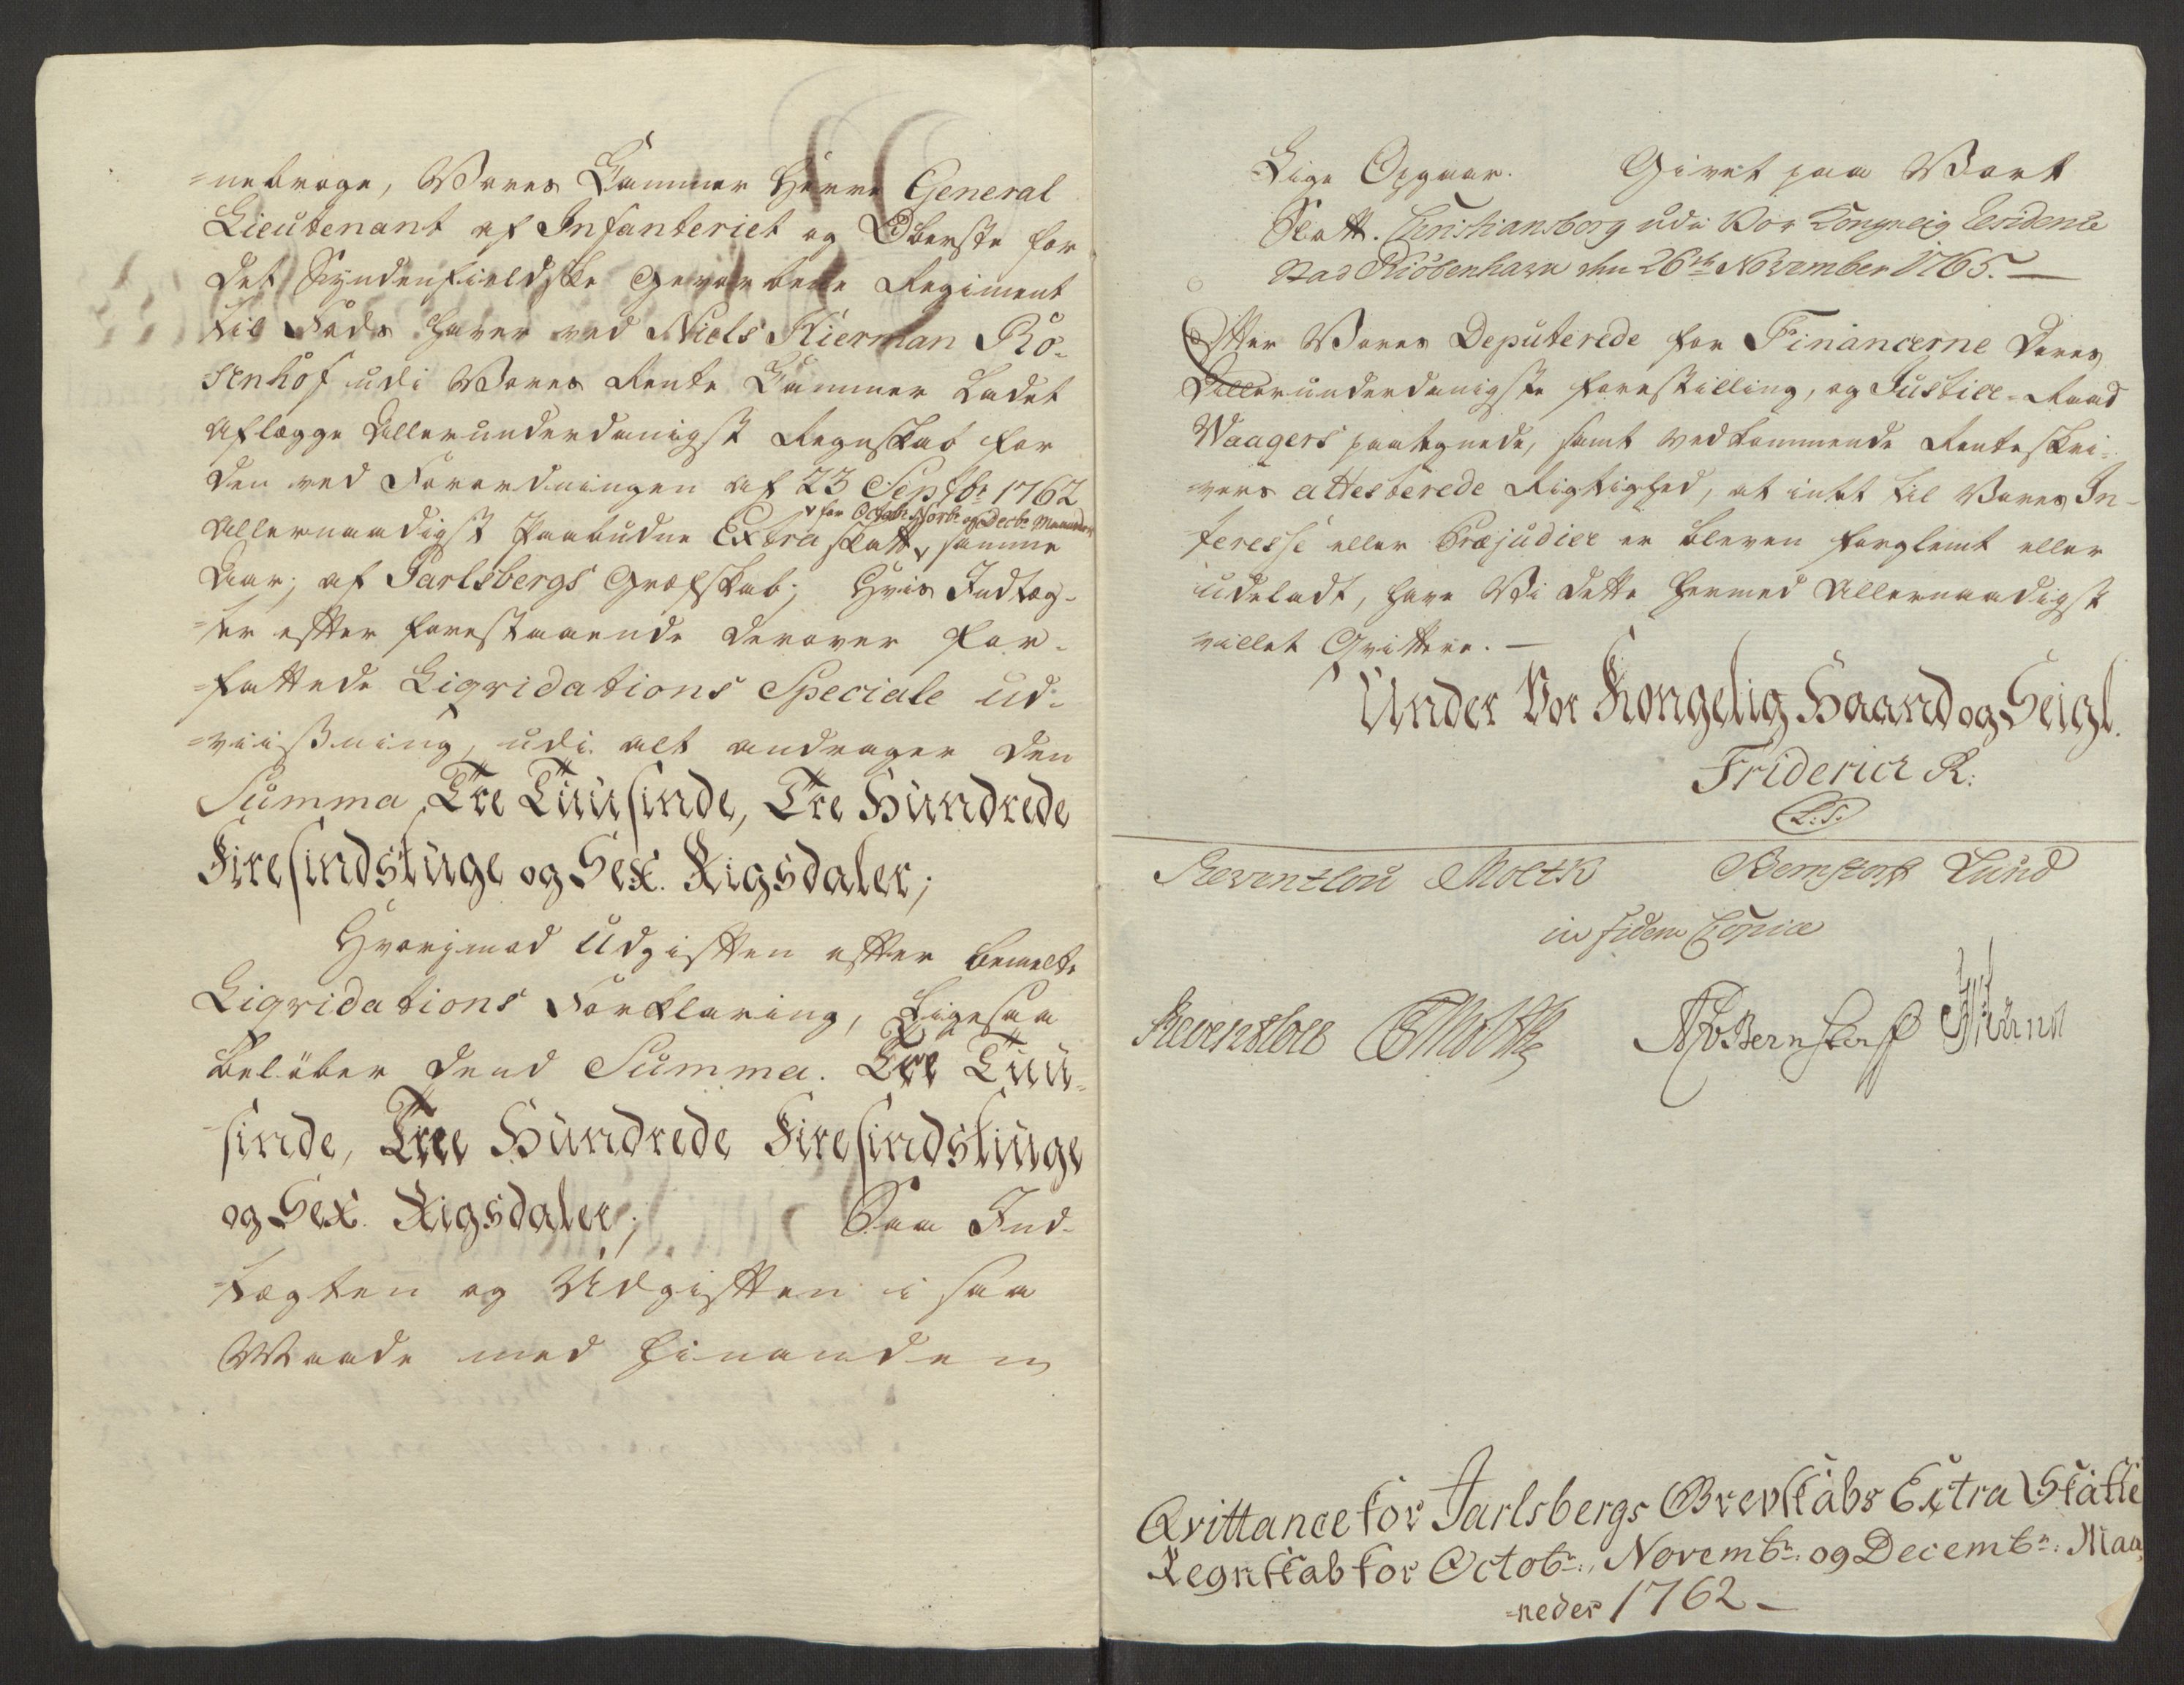 =nebroge, Vores Kammer Herre General
Lieutenant af Infanteriet og Oberste for
det Syndenfieldske Gevorbene Regiment
til Fods haver ved Niels Kierman Ro-
senhof udi Vores Rente Kammer ladet
aflægge Allerunderdanigst Regnskab for
den ved Forordningen af 23 Septbr: 1762
for Octobr: Novbr: og Decbr: Maaneder
Allernaadigst Paabudne Extra skatt, samme
Aar; af Jarlsbergs Grefskab; Hvis Indtæg-
=ter efter forestaaende derover for-
=fattede Liqvidations Speciale ud-
=viißning, udi alt andrager den
Summa, Tre Tuusinde, Tre Hundrede
Firesindstiuge og Sex. Rigsdaler;
Hvorimod Udgiften efter bemelte
Liqvidations Forklaring, Ligesaa
beløber dend Summa. Tre Tuu-
=sinde, Tree Hundrede Firesindstiuge
og Sex. Rigsdaler; Saa Ind-
=tægten og Udgiften i saa
Maade med hinanden
Lige Opgaar. Givet paa Vort
Slott. Christiansborg udi Vor Kongelig Residence
Stad Kiøbenhavn den 26de November 1765. —
Efter Vores Deputerede for Financerne deres
Allerunderdanigste forestilling, og Justice-Raad
Waagers paategnede, samt vedkommende Renteskri-
=vers attesterede Rigtighed, at intet til Vores In-
teresse eller Præjudice er bleven forglemt eller
udeladt, have Vi dette hermed Allernaadigst
villet Qvittere. —
Under Vor Kongelig Haand og Seigl.
Friderich R:
L.S.
Reventlou Moltk Bernstorf Lund
in fidem Copiæ
Reventlow Moltke Bernstorf Lund
Qvittance for Jarlsbergs Grevskabs Extra Skatte
Regnskab for Octobr:, Novembr: og Decembr: Maa
=neder 1762 —